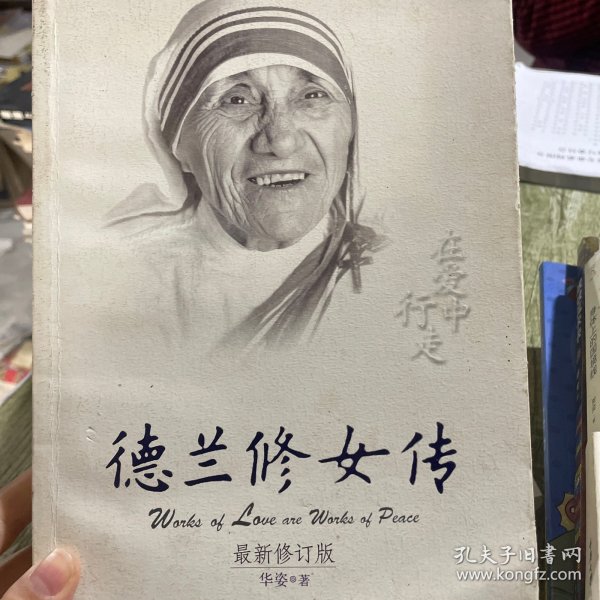 在爱中
行走
德兰修女传
Works of Love are Works of Peace
最新修订版
华姿◎著
孔夫子旧书网
www.kongfz.com